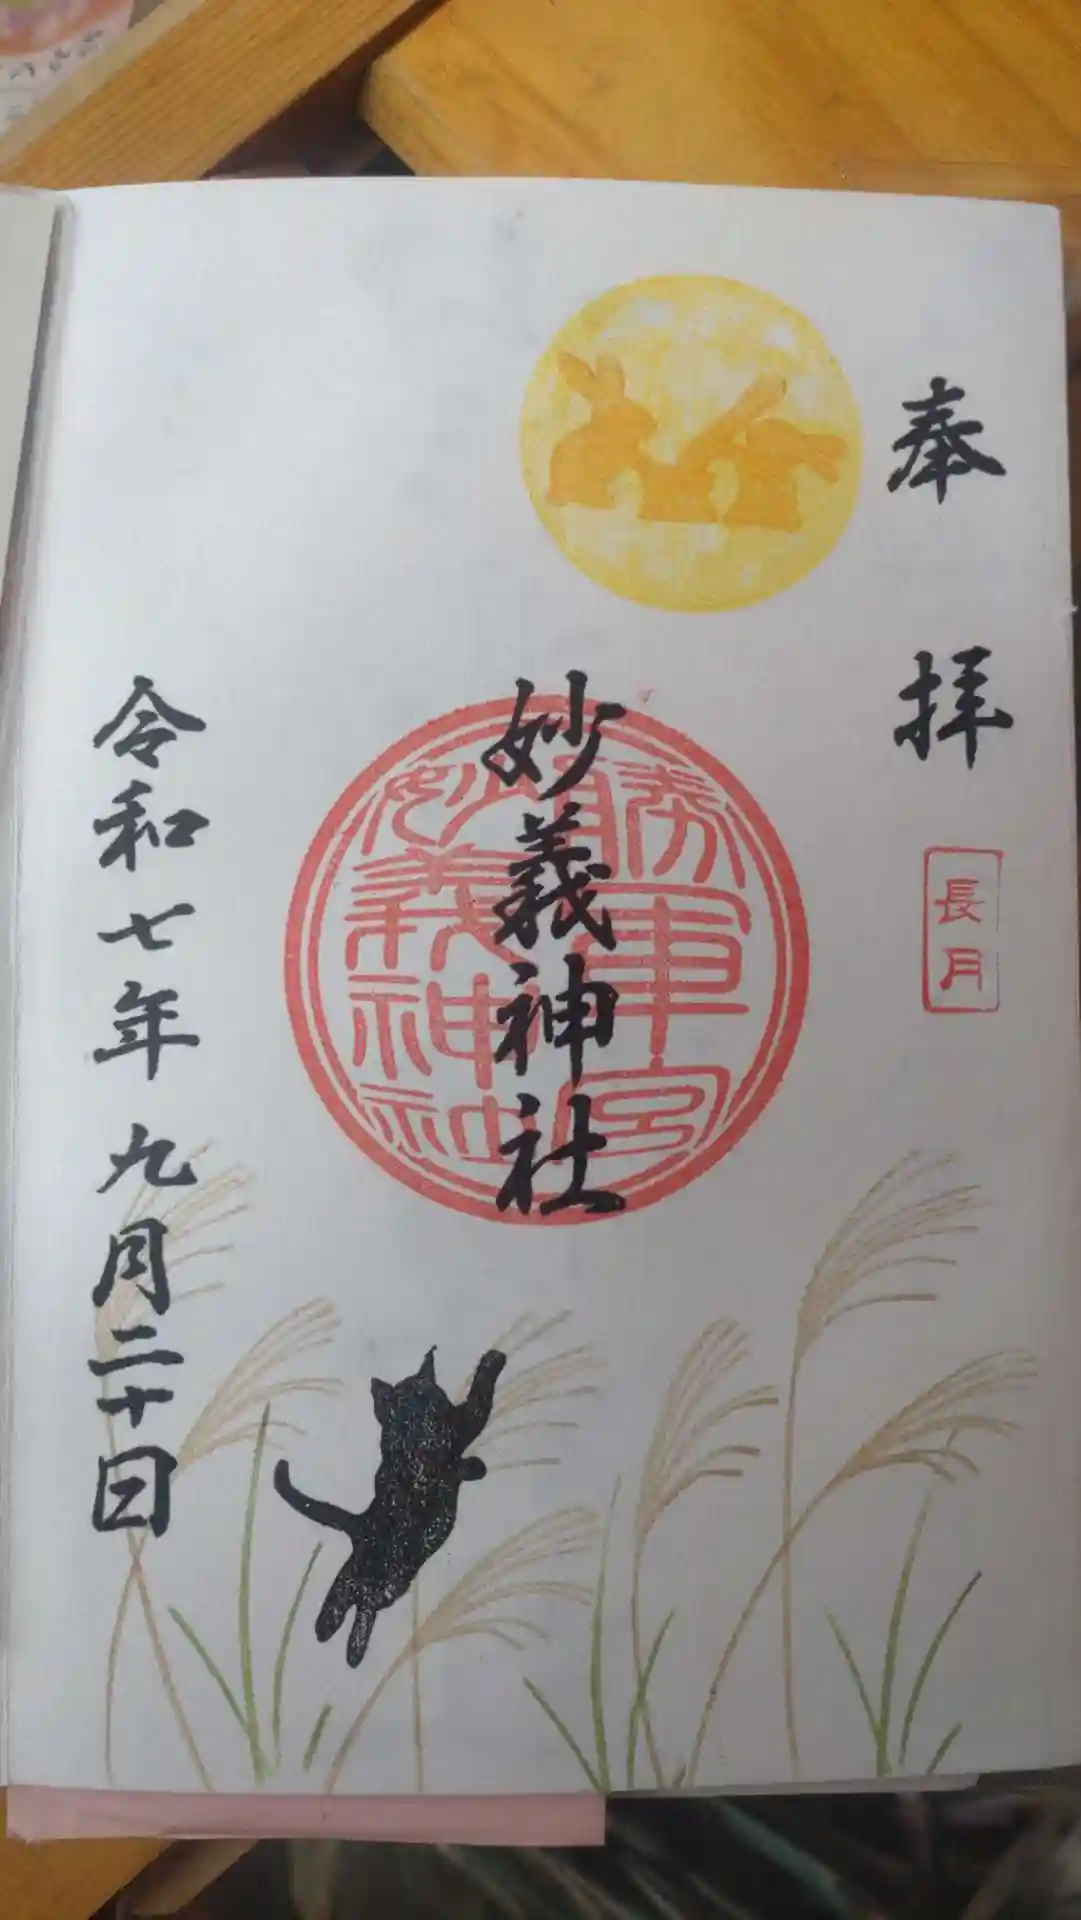 奉拝
長月
勝軍宮
妙義神社
妙義神社
令和七年九月二十日